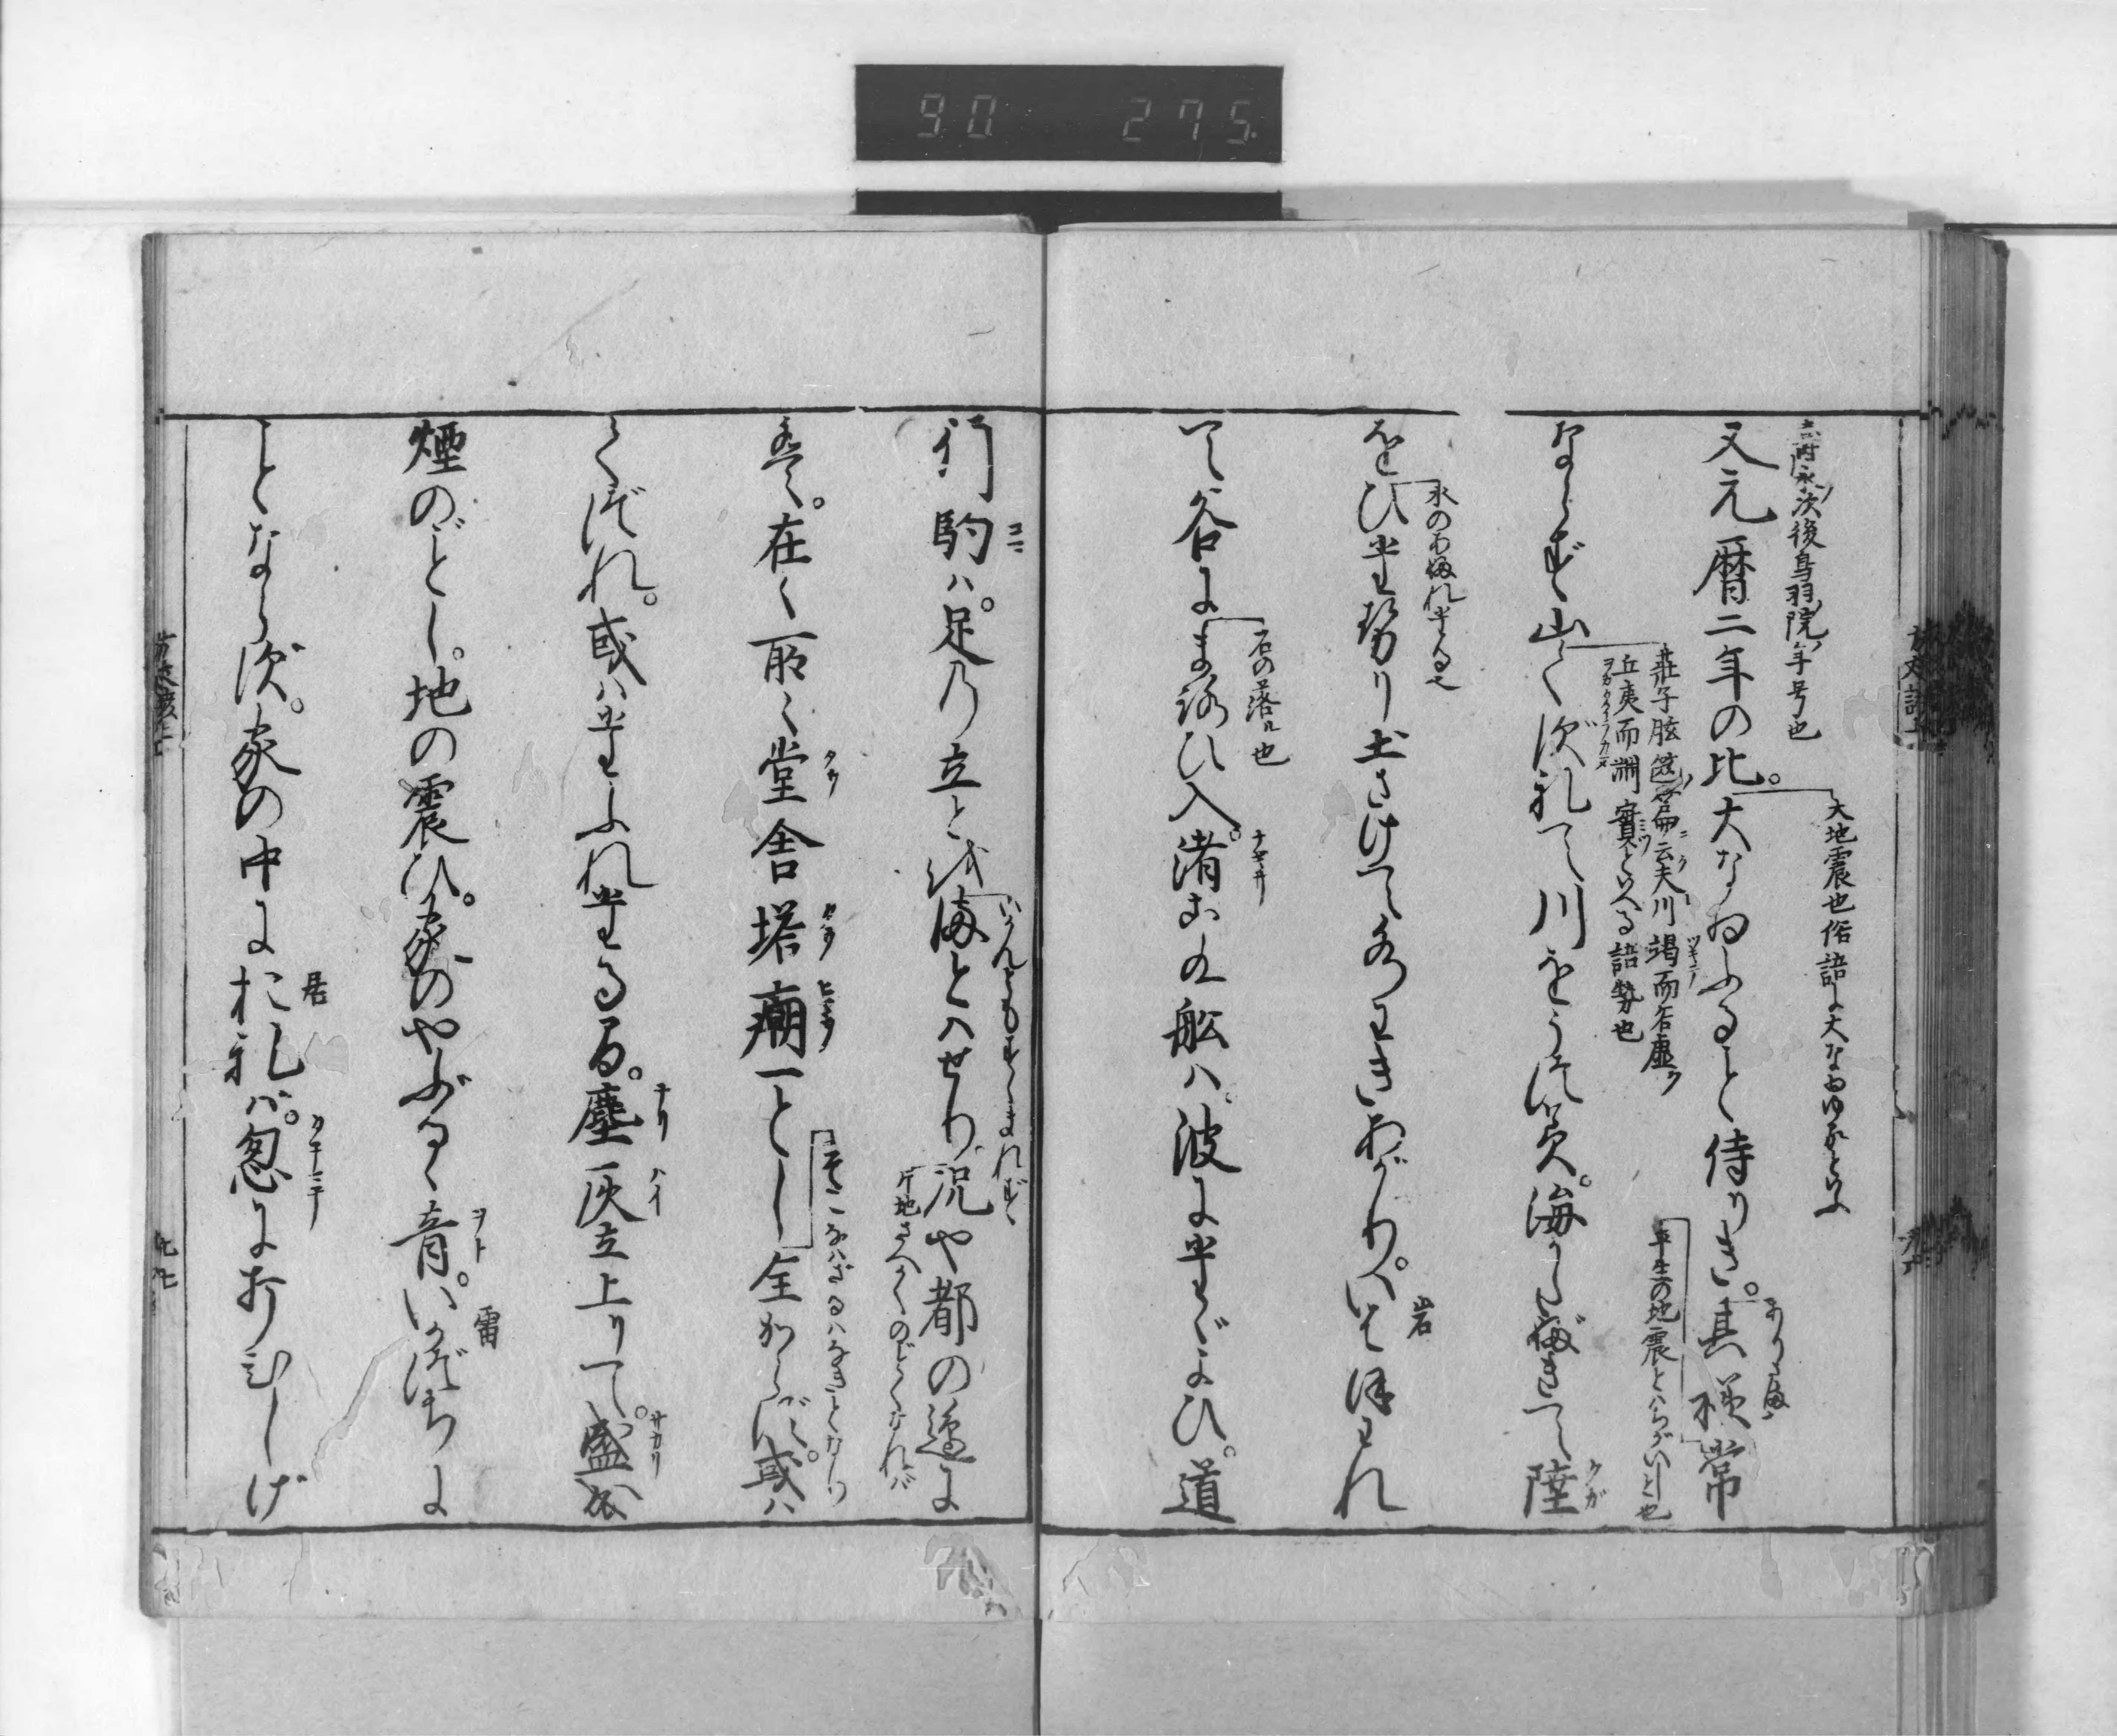 90 275.
寿永ノ次後鳥羽院ノ年号也
大地震也俗語に大なゐゆるといふ
又元暦二年の比。大なゐふること侍りき。其様常
ありさま
荘子胠篋篇ニ云夫川竭而谷虚ク
丘夷而淵実といへる語勢也
平生の地震とハちがいしと也
ならず山くづれて川をうづミ。海かたぶきて陸
クガ
水のあふれきたる也
をひたせり土さけて水わきあがり。いはほわれ
岩
石の落ル也
て谷にまろび入渚こぐ船ハ。波にたゞよひ。道
ナギサ
行駒ハ。足の立とをまどハせり。況や都の邊に
コマ
片地さへかくのごとくなれバ
そこなハざるハなきことなり
は。在〻所〻堂舎塔廟一として全からず。或ハ
タウ ヒヤウ
くづれ。或ハたふれたる間。塵灰立上りて。盛なる
チリ ハイ サカリ
煙のごとし。地の震ひ。家のやぶるゝ音。いかづちに
ヲト 雷
ことならず。家の中にをれば。忽に打ひしげ
居